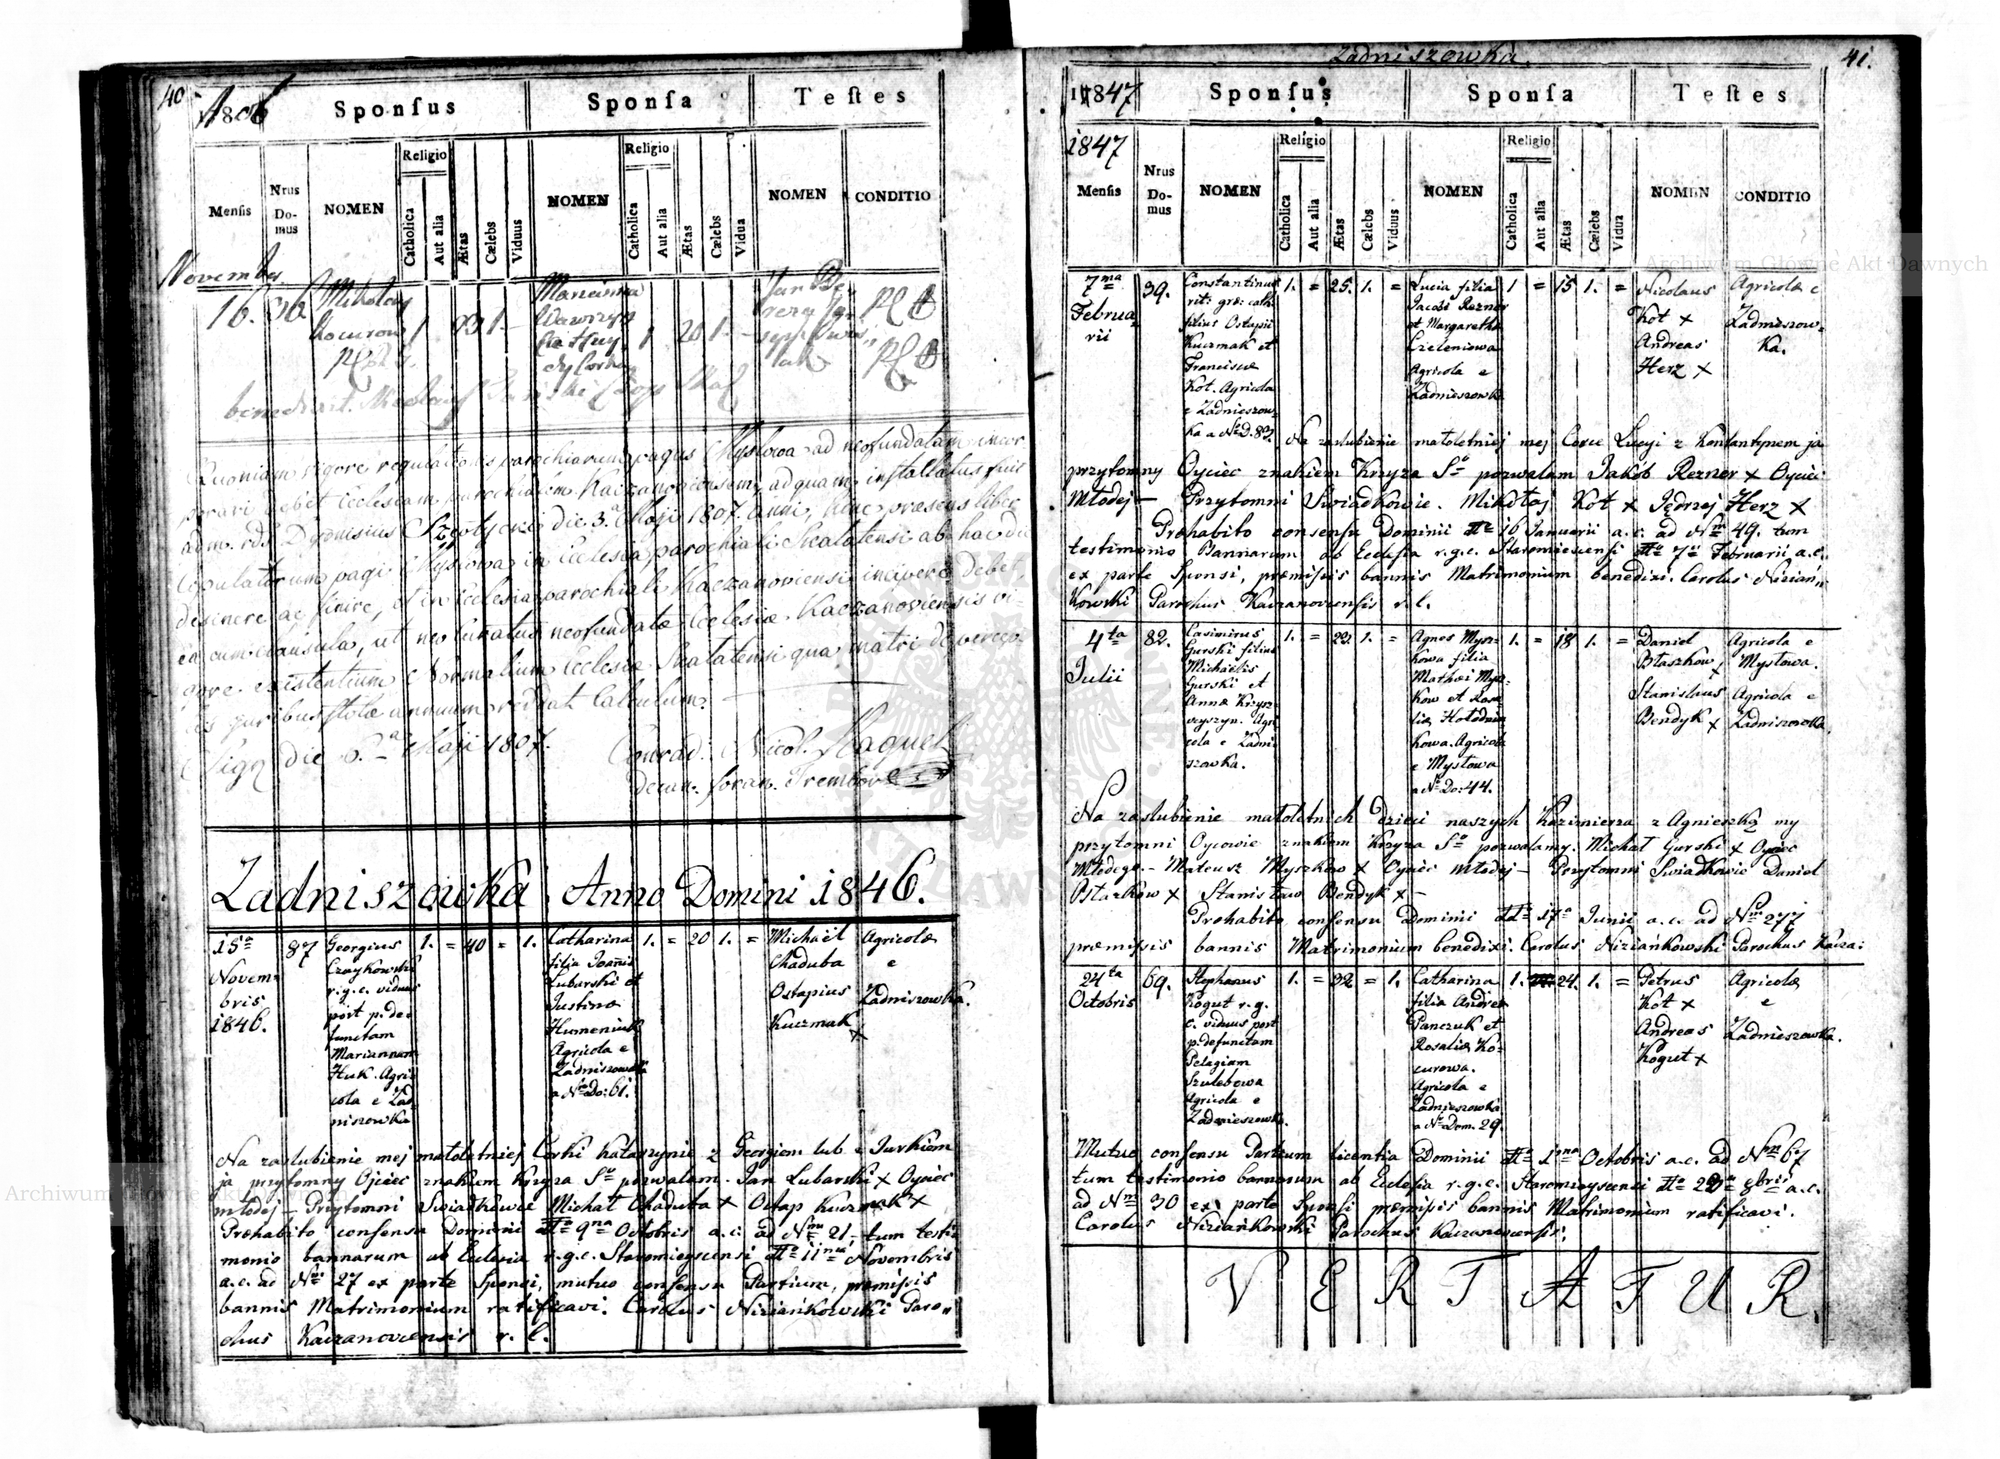 40
1806
Sponsus Sponsa Testes
Religio Religio
Mensis Nrus Domus NOMEN Catholica Aut alia Ætas Cælebs Viduus NOMEN Catholica Aut alia Ætas Cælebs Vidua NOMEN CONDITIO
November
16. 36.
Mikołay
Kocurow
1
1
20 1
Quoniam vigore regulationis parochiarum pagus Mysłowa ad neofundatam incor
porari debet Ecclesiam parochialem Kaczanoviensem, ad quam installatus fuit
adm. rds Dyonisius die 3a Maji 1807. anni, hinc præsens liber
Copulatorum pagi Mysłowa in Ecclesia parochiali Skalatensi ab hac die
desinere ac finire, et in Ecclesia parochiali Kaczanoviensi incipere debet,
ea cum clausula, ut neo Curatus neofundatæ Ecclesiæ Kaczanoviensis vi-
gore existentium Normalium Ecclesiæ Skalatensi qua matri de
is juribus stolæ annuum reddat Calculum.
Sign die 6.a Maji 1807. Conrad. Nicol.
decan. foran. Trembov
Zadniszowka Anno Domini 1846.
15a
Novem-
bris
1846.
87
Georgius
Czaykowski
r.g.c. viduus
post p. de-
functam
Mariannam
Huk. Agri-
cola e Zad-
niszowka
1. = 40 = 1.
Catharina
filia Joannis
Lubarski et
Justina
Humeniuk
Agricola e
Zadniszowka
a Nro Do: 61.
1. = 20 1. =
Michaël
Chaduba
Ostapius
Kuczmak
x
Agricolæ
e
Zadniszowka.
Na zaslubienie mej małoletniej Corki Katarzynie z Georgiem lub Jurkiem
ja przytomny Ojciec znakiem Krzyza So pozwalam. Jan Lubarski x Oyciec
młodej – Przytomni Swiadkowie Michał Chaduba x Ostap Kuczmak x
Præhabito consensu Dominii dto 9na Octobris a.c. ad Nrum 21, tum testi-
monio bannarum ab Eclesia r.g.c. Staromieyscensi dto 11ma Novembris
a.c. ad Nrum 27 ex parte Sponsi, mutuo consensu Partium, præmissis
bannis Matrimonium ratificavi. Carolus Niziańkowski Paro-
chus Kaczanovcensis r. l.
Zadniszowka.
41.
1847
Sponsus Sponsa Testes
1847
Religio Religio
Mensis Nrus Domus NOMEN Catholica Aut alia Ætas Cælebs Viduus NOMEN Catholica Aut alia Ætas Cælebs Vidua NOMEN CONDITIO
7ma
Februa-
rii
39.
Constantinus
rit: græ: cath.
filius Ostapii
Kuczmak et
Franciscæ
Kot. Agricola
e Zadnieszow-
ka a No D. 83.
1. = 25. 1. =
Lucia filia
Jacobi Rezner
et Margaretha
Czeleniowa
Agricola e
Zadnieszowka
1 = 15 1. =
Nicolaus
Kot x
Andreas
Herz x
Agricolæ e
Zadnieszow-
ka.
Na zaslubienie małoletniej mej Corce Lucyi z Konstantynem ja
przytomny Oyciec znakiem Krzyza So pozwalam Jakób Rezner x Oyciec
Młodej – Przytomni Swiadkowie. Mikołaj Kot x Jędrzej Herz x
Præhabito consensu Dominii dto 16 Januarii a.c. ad Nrm 49. tum
testimonio Bannarum ab Eclesia r.g.c. Staromiescensi dto 7a Februarii a.c.
ex parte Sponsi, præmissis bannis Matrimonium benedixi. Carolus Niziań-
kowski Parochus Kaczanovcensis r.l.
4ta
Julii
82.
Casimirus
Gurski filius
Michaëlis
Gurski et
Annæ Krzysz-
cyszyn. Agri-
cola e Zadni-
szowka.
1. = 22. 1. =
Agnes Mysz-
kowa filia
Mathæi Mysz-
kow et Rosa-
liæ Hołodniu-
kowa. Agricola
e Mysłowa
a No Do: 44.
1. = 18 1. =
Daniel
Błaszkow x
Stanislaus
Bendyk x
Agricola e
Mysłowa.
Agricola e
Zadniszowka.
Na zaslubienie małoletnich Dzieci naszych Kazimierza z Agnieszką my
przytomni Oycowie znakiem Krzyza So pozwalamy. Michał Gurski x Oyciec
Młodego – Mateusz Myszkow x Oyciec młodej – Przytomni Swiadkowie Daniel
Błazkow x Stanisław Bendyk x –
Præhabito consensu Dominii dto 17a Junii a.c. ad Nrm 277
præmissis bannis Matrimonium benedixi. Carolus Niziańkowski Parochus Kacza:
24ta
Octobris
69.
Stephanus
Kogut r.g.
c. viduus post
p. defunctam
Pelagiam
Szulebowa
Agricola e
Zadnieszowka.
1. = 32 = 1.
Catharina
filia Andreæ
Panczuk et
Rosaliæ Ko-
curowa.
Agricola e
Zadnieszowka
a No Dom. 29.
1. 24. 1. =
Petrus
Kot x
Andreas
Kogut x
Agricolæ
e
Zadnieszowka.
Mutuo consensu Partium licentia Dominii dto 1ma Octobris a.c. ad Nrm 67
tum testimonio bannarum ab Eclesia r.g.c. Staromieyscensi dto 22a 8bris a.c.
ad Nrm 30 ex parte Sponsi præmissis bannis Matrimonium ratificavi.
Carolus Niziańkowski Parochus Kaczanovcensis.
VERTATUR.
Archiwum Główne Akt Dawnych
Archiwum Główne Akt Dawnych